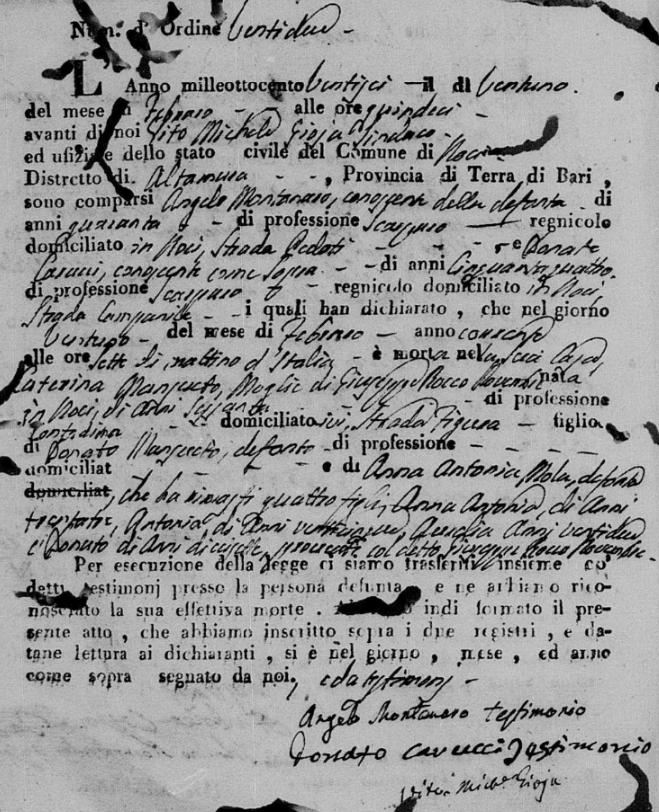 Num. d' Ordine Ventidue -
L' Anno milleottocento Ventisei - il dì Ventuno
del mese di Febraro - - alle ore quindeci -
avanti di noi Vito Michele Gioja Sindaco -
ed ufiziale dello stato civile del Comune di Noci
Distretto di Altamura - - , Provincia di Terra di Bari ,
sono comparsi Angelo Montanaro, conoscente della defonta - di
anni quaranta - di professione Scarparo - regnicolo
domiciliato in Noci, Strada - - - e Donato
Carucci, conoscente come sopra - - di anni Cinquantaquattro
di professione Scarparo - regnicolo domiciliato in Noci
Strada Campanile - - i quali han dichiarato , che nel giorno
Ventuno - del mese di Febraro - anno corrente
alle ore sette di mattino d'Italia - è morta nella sua Casa,
Caterina Mansueto, Moglie di Giuseppe Rocco nata
in Noci, di Anni Sessanta - di professione
Contadina - domiciliato ivi, Strada Figuera - figlio
di Donato Mansueto, defonto - di professione - - - -
domiciliat - - - e di Anna Antonia Mola, defonta
domiciliat, che ha rimasti quattro figli, Anna Antonia, di Anni
trentatre, Antonia di Anni ventinove, Anni ventidue,
e Donato di Anni diciasette, procreati col detto Giuseppe Rocco
Per esecuzione della legge ci siamo trasferiti insieme co'
detti testimonj presso la persona defunta e ne abbiamo rico-
nosciuto la sua effettiva morte . indi formato il pre-
sente atto , che abbiamo inscritto sopra i due registri , e da-
tane lettura ai dichiaranti , si è nel giorno , mese , ed anno
come sopra segnato da noi, e da testimonj -
Angelo Montanaro testimonio
Donato Carucci Testimonio
Vito Mich. Gioja